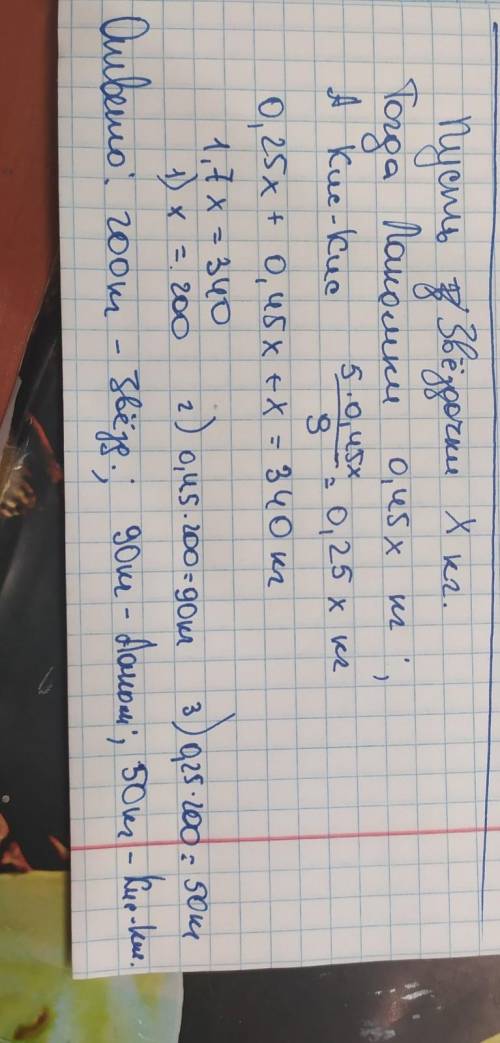 Пусть Звёздочки X кг.
Тогда Лакомки 0,45x кг;
А Кис-Кис 5·0,45x/9 = 0,25x кг
0,25x + 0,45x + x = 340 кг
1,7x = 340
1) x = 200 2) 0,45·200=90кг 3) 0,25·200=50кг
Ответ: 200кг - Звёзд.; 90кг - Лаком.; 50кг - Кис-Кис.